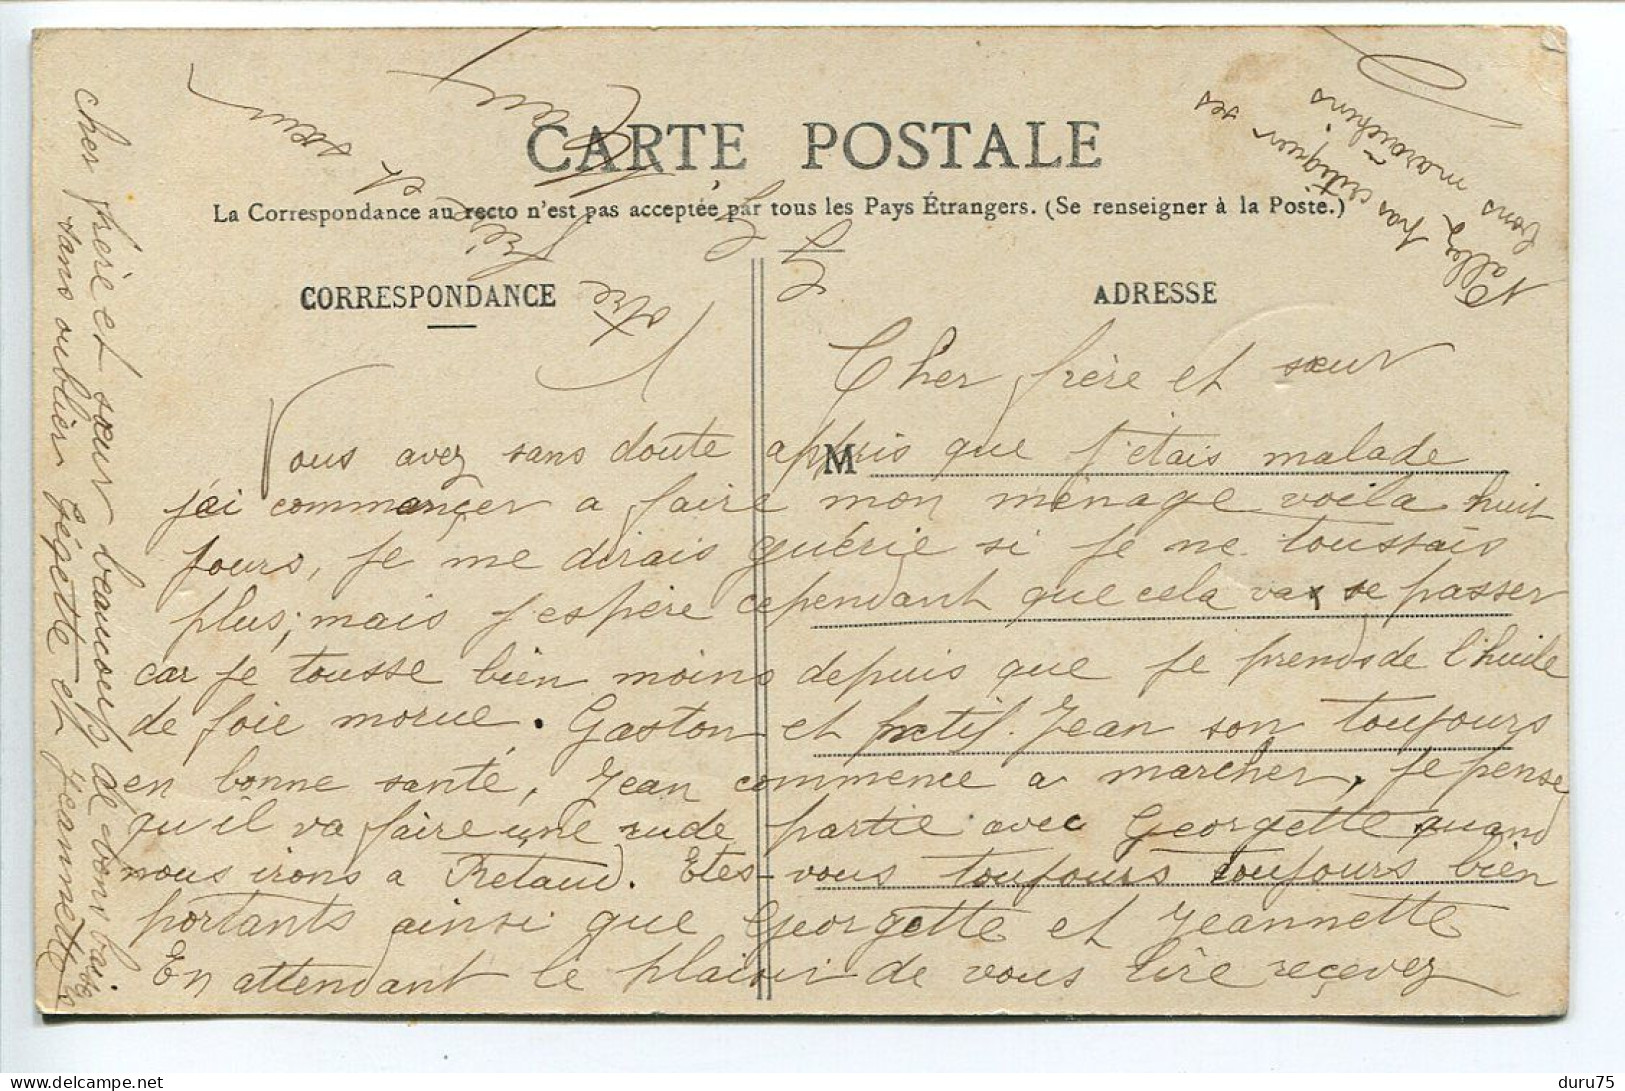 CARTE POSTALE
La Correspondance au recto n'est pas acceptée par tous les Pays Étrangers. (Se renseigner à la Poste.)
CORRESPONDANCE
ADRESSE
M
Cher frère et sœur
Vous avez sans doute appris que j'étais malade
j'ai commançer a faire mon ménage voila huit
jours, je me dirais guérie si je ne toussais
plus, mais j'espére cependant que cela va se passer
car je tousse bien moins depuis que je prends de l'huile
de foie morue. Gaston et petit Jean son toujours
en bonne santé, Jean commence a marcher, je pense
qu'il va faire une rude partie avec Georgette quand
nous irons a Retaud. Etes-vous toujours toujours bien
portants ainsi que Georgette et Jeannette
En attendant le plaisir de vous lire reçevez
cher frère et sœur beaucoup de bons baisés
sans oublier Gégette et Jeannette
Votre frère et sœur
N'allez pas critiquer ses
bons maraichins
duru75